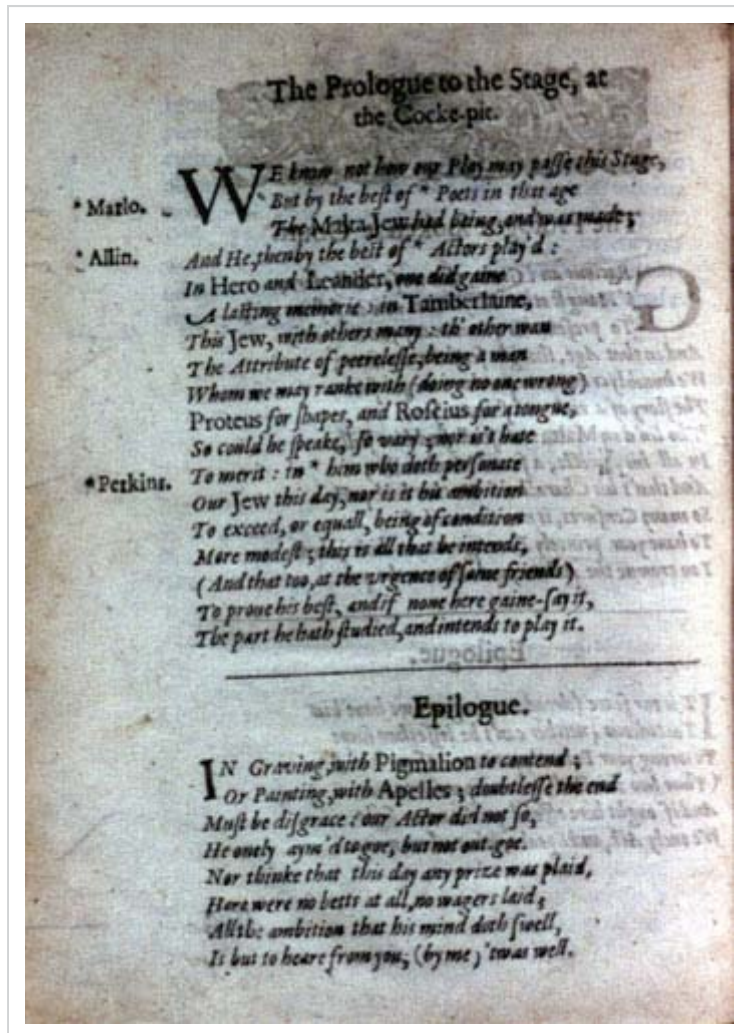 The Prologue to the Stage, at
the Cocke-pit.
WE know not how our Play may passe this Stage,
But by the best of * Poets in that age
* Marlo.
The Malta Jew had being, and was made;
* Allin.
And He, then by the best of * Actors play'd:
In Hero and Leander, one did gaine
A lasting memorie: in Tamberlaine,
This Jew, with others many: th' other wan
The Attribute of peerelesse, being a man
Whom we may ranke with (doing no one wrong)
Proteus for shapes, and Roscius for a tongue,
So could he speake, so vary; nor is't hate
To merit: in * him who doth personate
* Perkins.
Our Jew this day, nor is it his ambition
To exceed, or equall, being of condition
More modest; this is all that he intends,
(And that too, at the urgence of some friends)
To prove his best, and if none here gaine-say it,
The part he hath studied, and intends to play it.
Epilogue.
IN Graving, with Pigmalion to contend;
Or Painting, with Apelles; doubtlesse the end
Must be disgrace: our Actor did not so,
He onely aym'd to goe, but not out-goe.
Nor thinke that this day any prize was plaid,
Here were no betts at all, no wagers laid;
All the ambition that his mind doth swell,
Is but to heare from you, (by me) 'twas well.